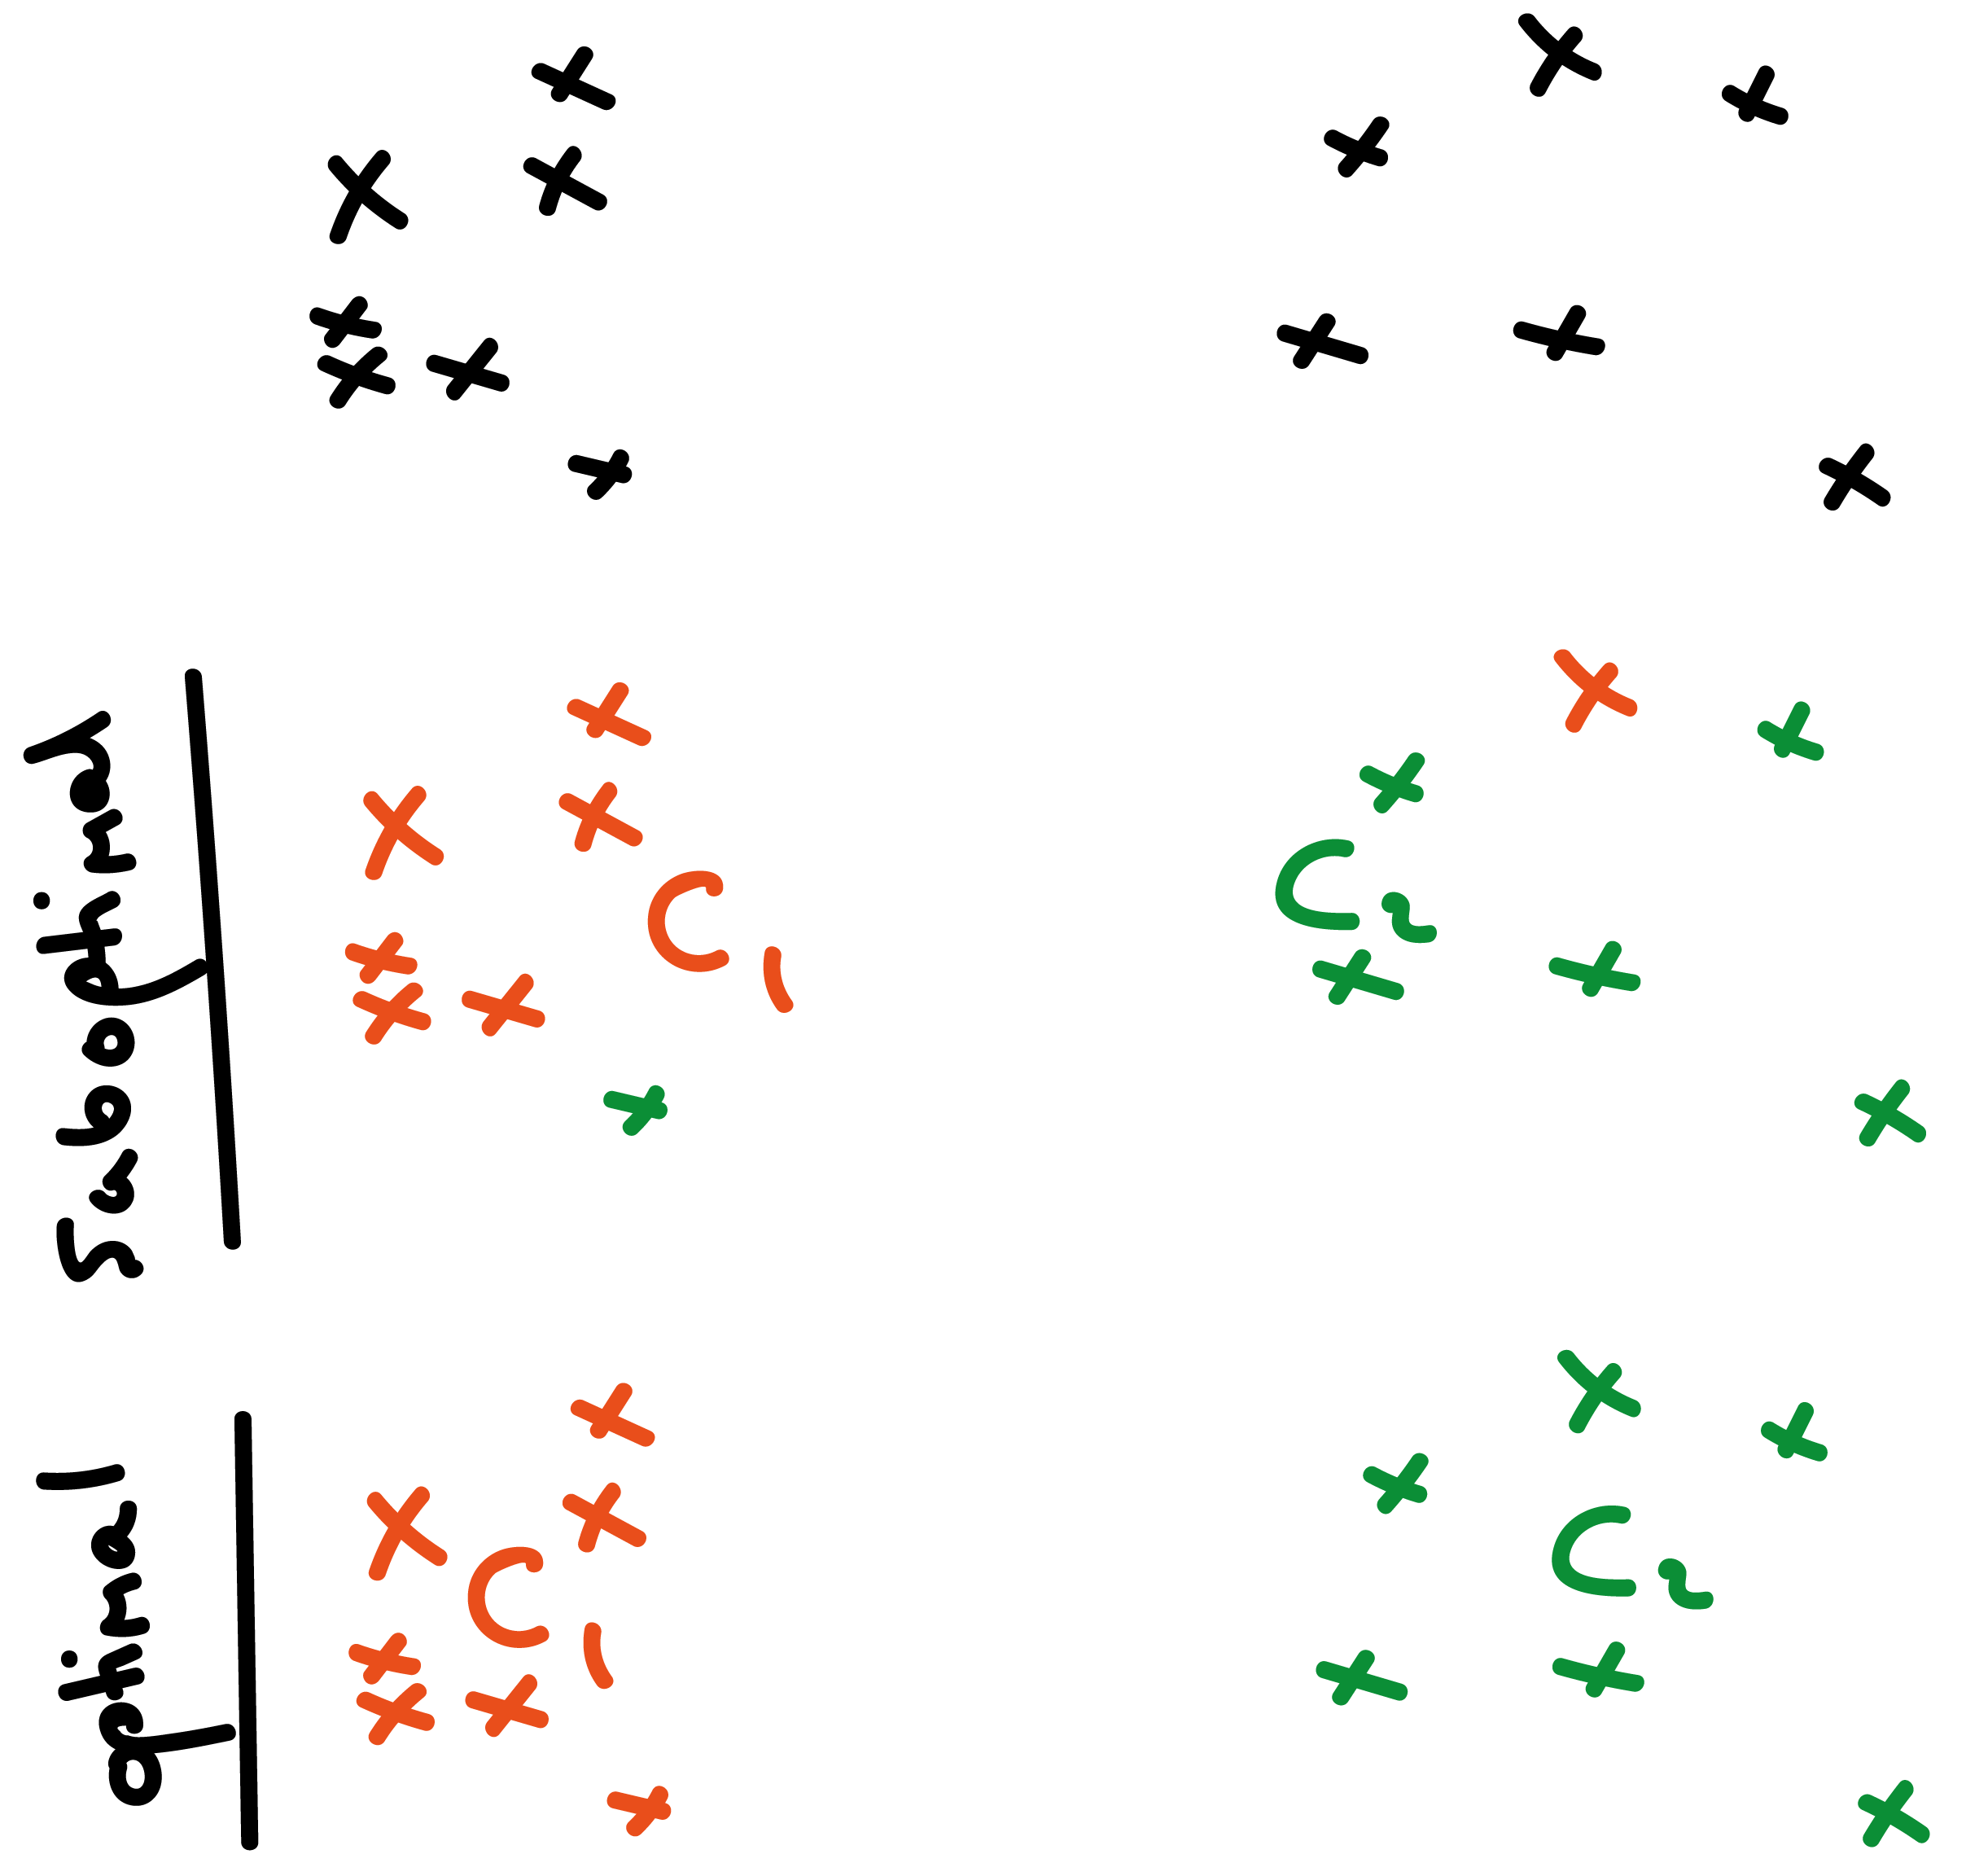 Suboptimal
C1
C2
optimal
C1
C2